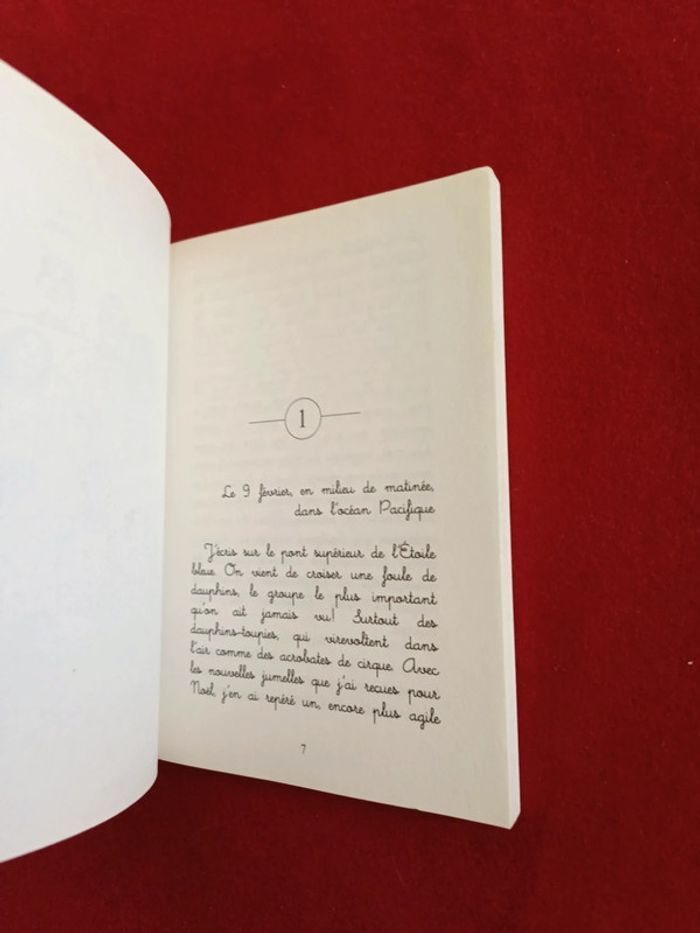 1
Le 9 février, en milieu de matinée,
dans l'océan Pacifique
J'écris sur le pont supérieur de l'Étoile
bleue. On vient de croiser une foule de
dauphins, le groupe le plus important
qu'on ait jamais vu! Surtout des
dauphins-toupies, qui virevoltent dans
l'air comme des acrobates de cirque. Avec
les nouvelles jumelles que j'ai reçues pour
Noël, j'en ai repéré un, encore plus agile
7